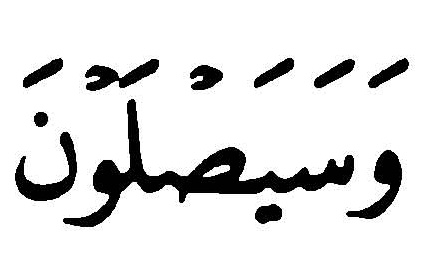 وَسَيَصْلَوْنَ